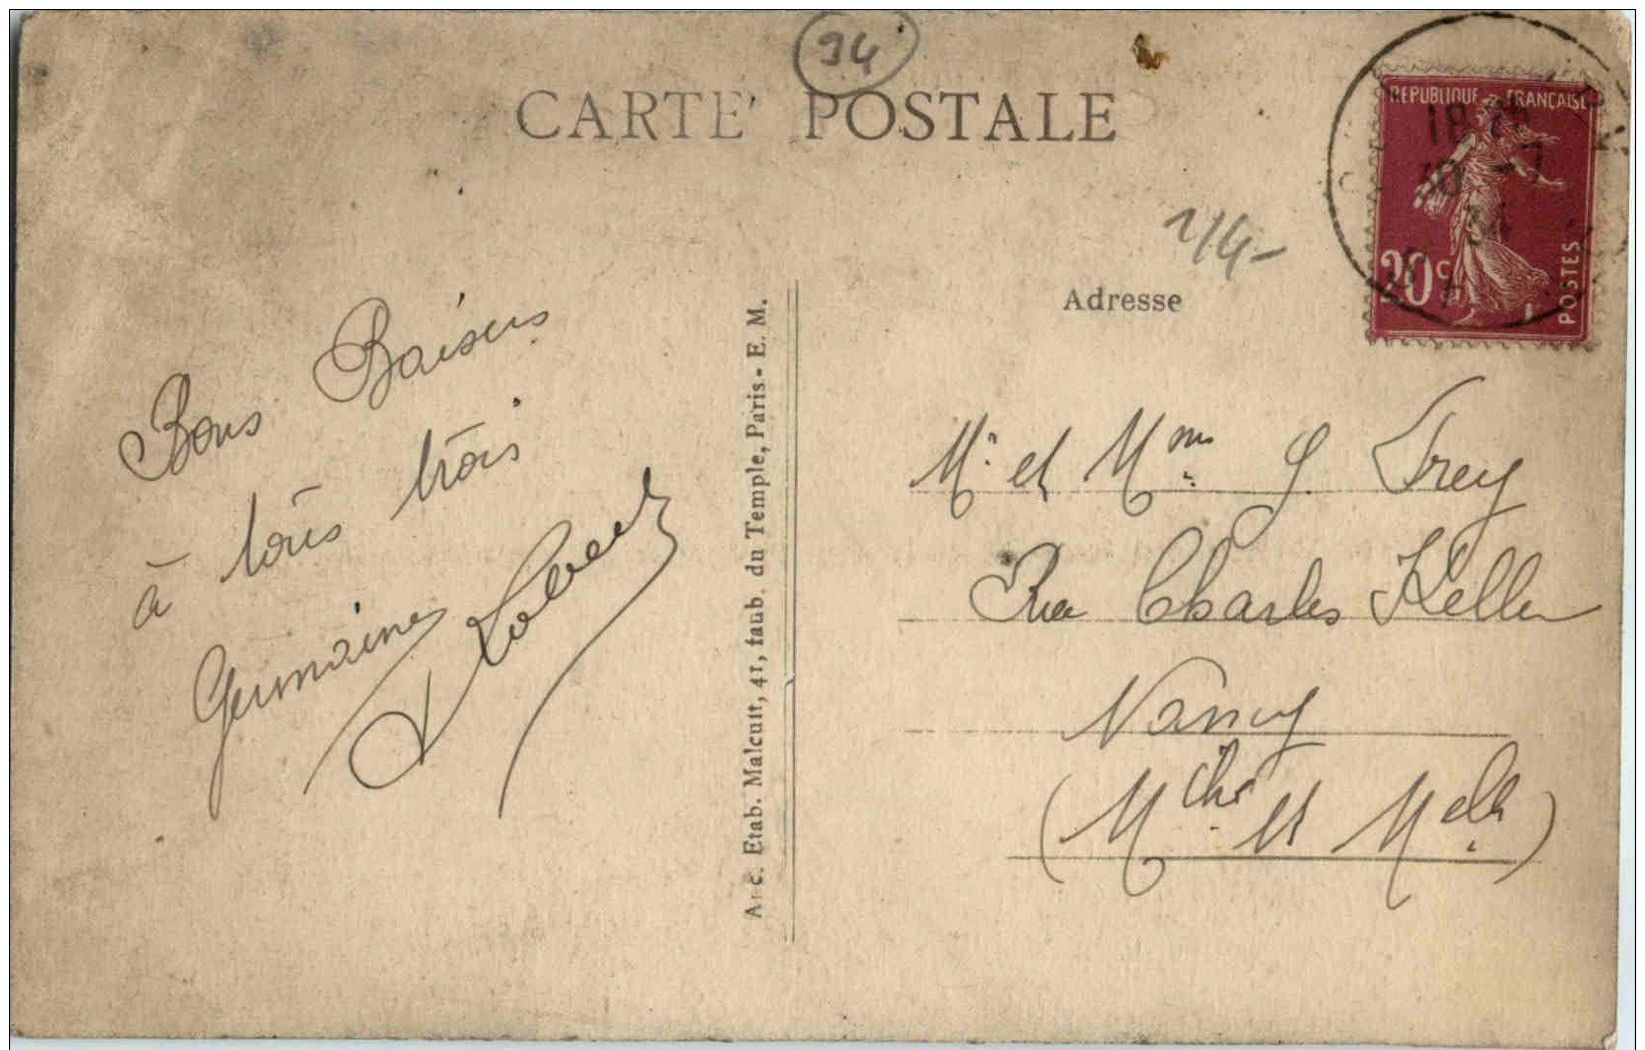 94
CARTE POSTALE
REPUBLIQUE FRANÇAISE
18
-7
20c
POSTES
Adresse
Bons Baisers
à tous trois
Germaine
A. C. Etab. Malcuit, 41, faub. du Temple, Paris - E. M.
Mr. et Mme. G. Frey
Rue Charles Keller
Nancy
(Mche et Mlle)